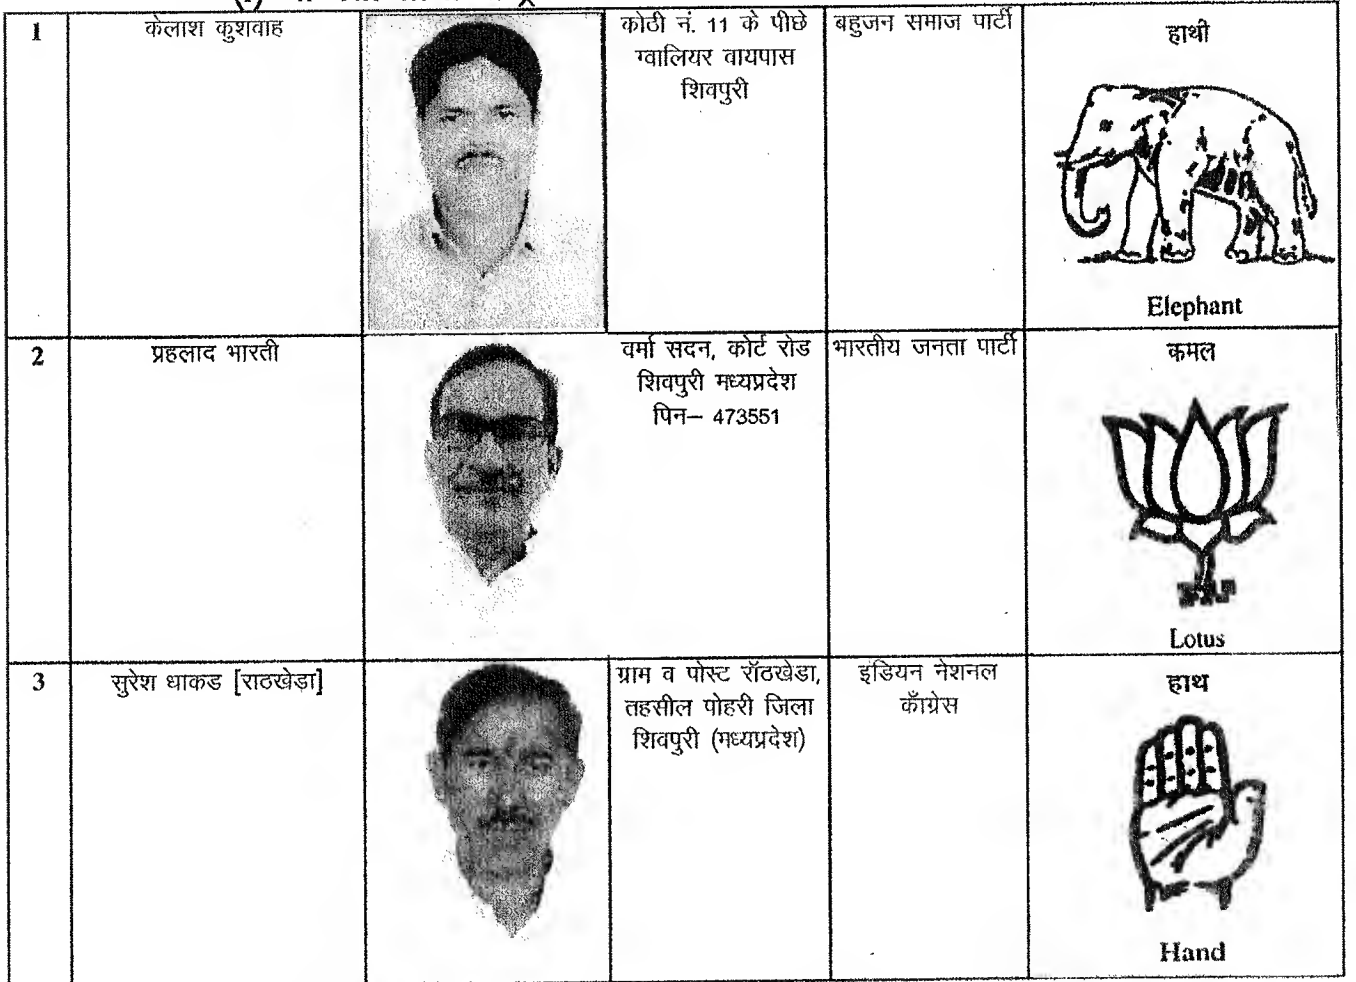 1
केलाश कुशवाह
कोठी नं. 11 के पीछे
ग्वालियर वायपास
शिवपुरी
बहुजन समाज पार्टी
हाथी
Elephant
2
प्रहलाद भारती
वर्मा सदन, कोर्ट रोड
शिवपुरी मध्यप्रदेश
पिन– 473551
भारतीय जनता पार्टी
कमल
Lotus
3
सुरेश धाकड [राठखेड़ा]
ग्राम व पोस्ट रॉठखेडा,
तहसील पोहरी जिला
शिवपुरी (मध्यप्रदेश)
इंडियन नेशनल
कॉंग्रेस
हाथ
Hand